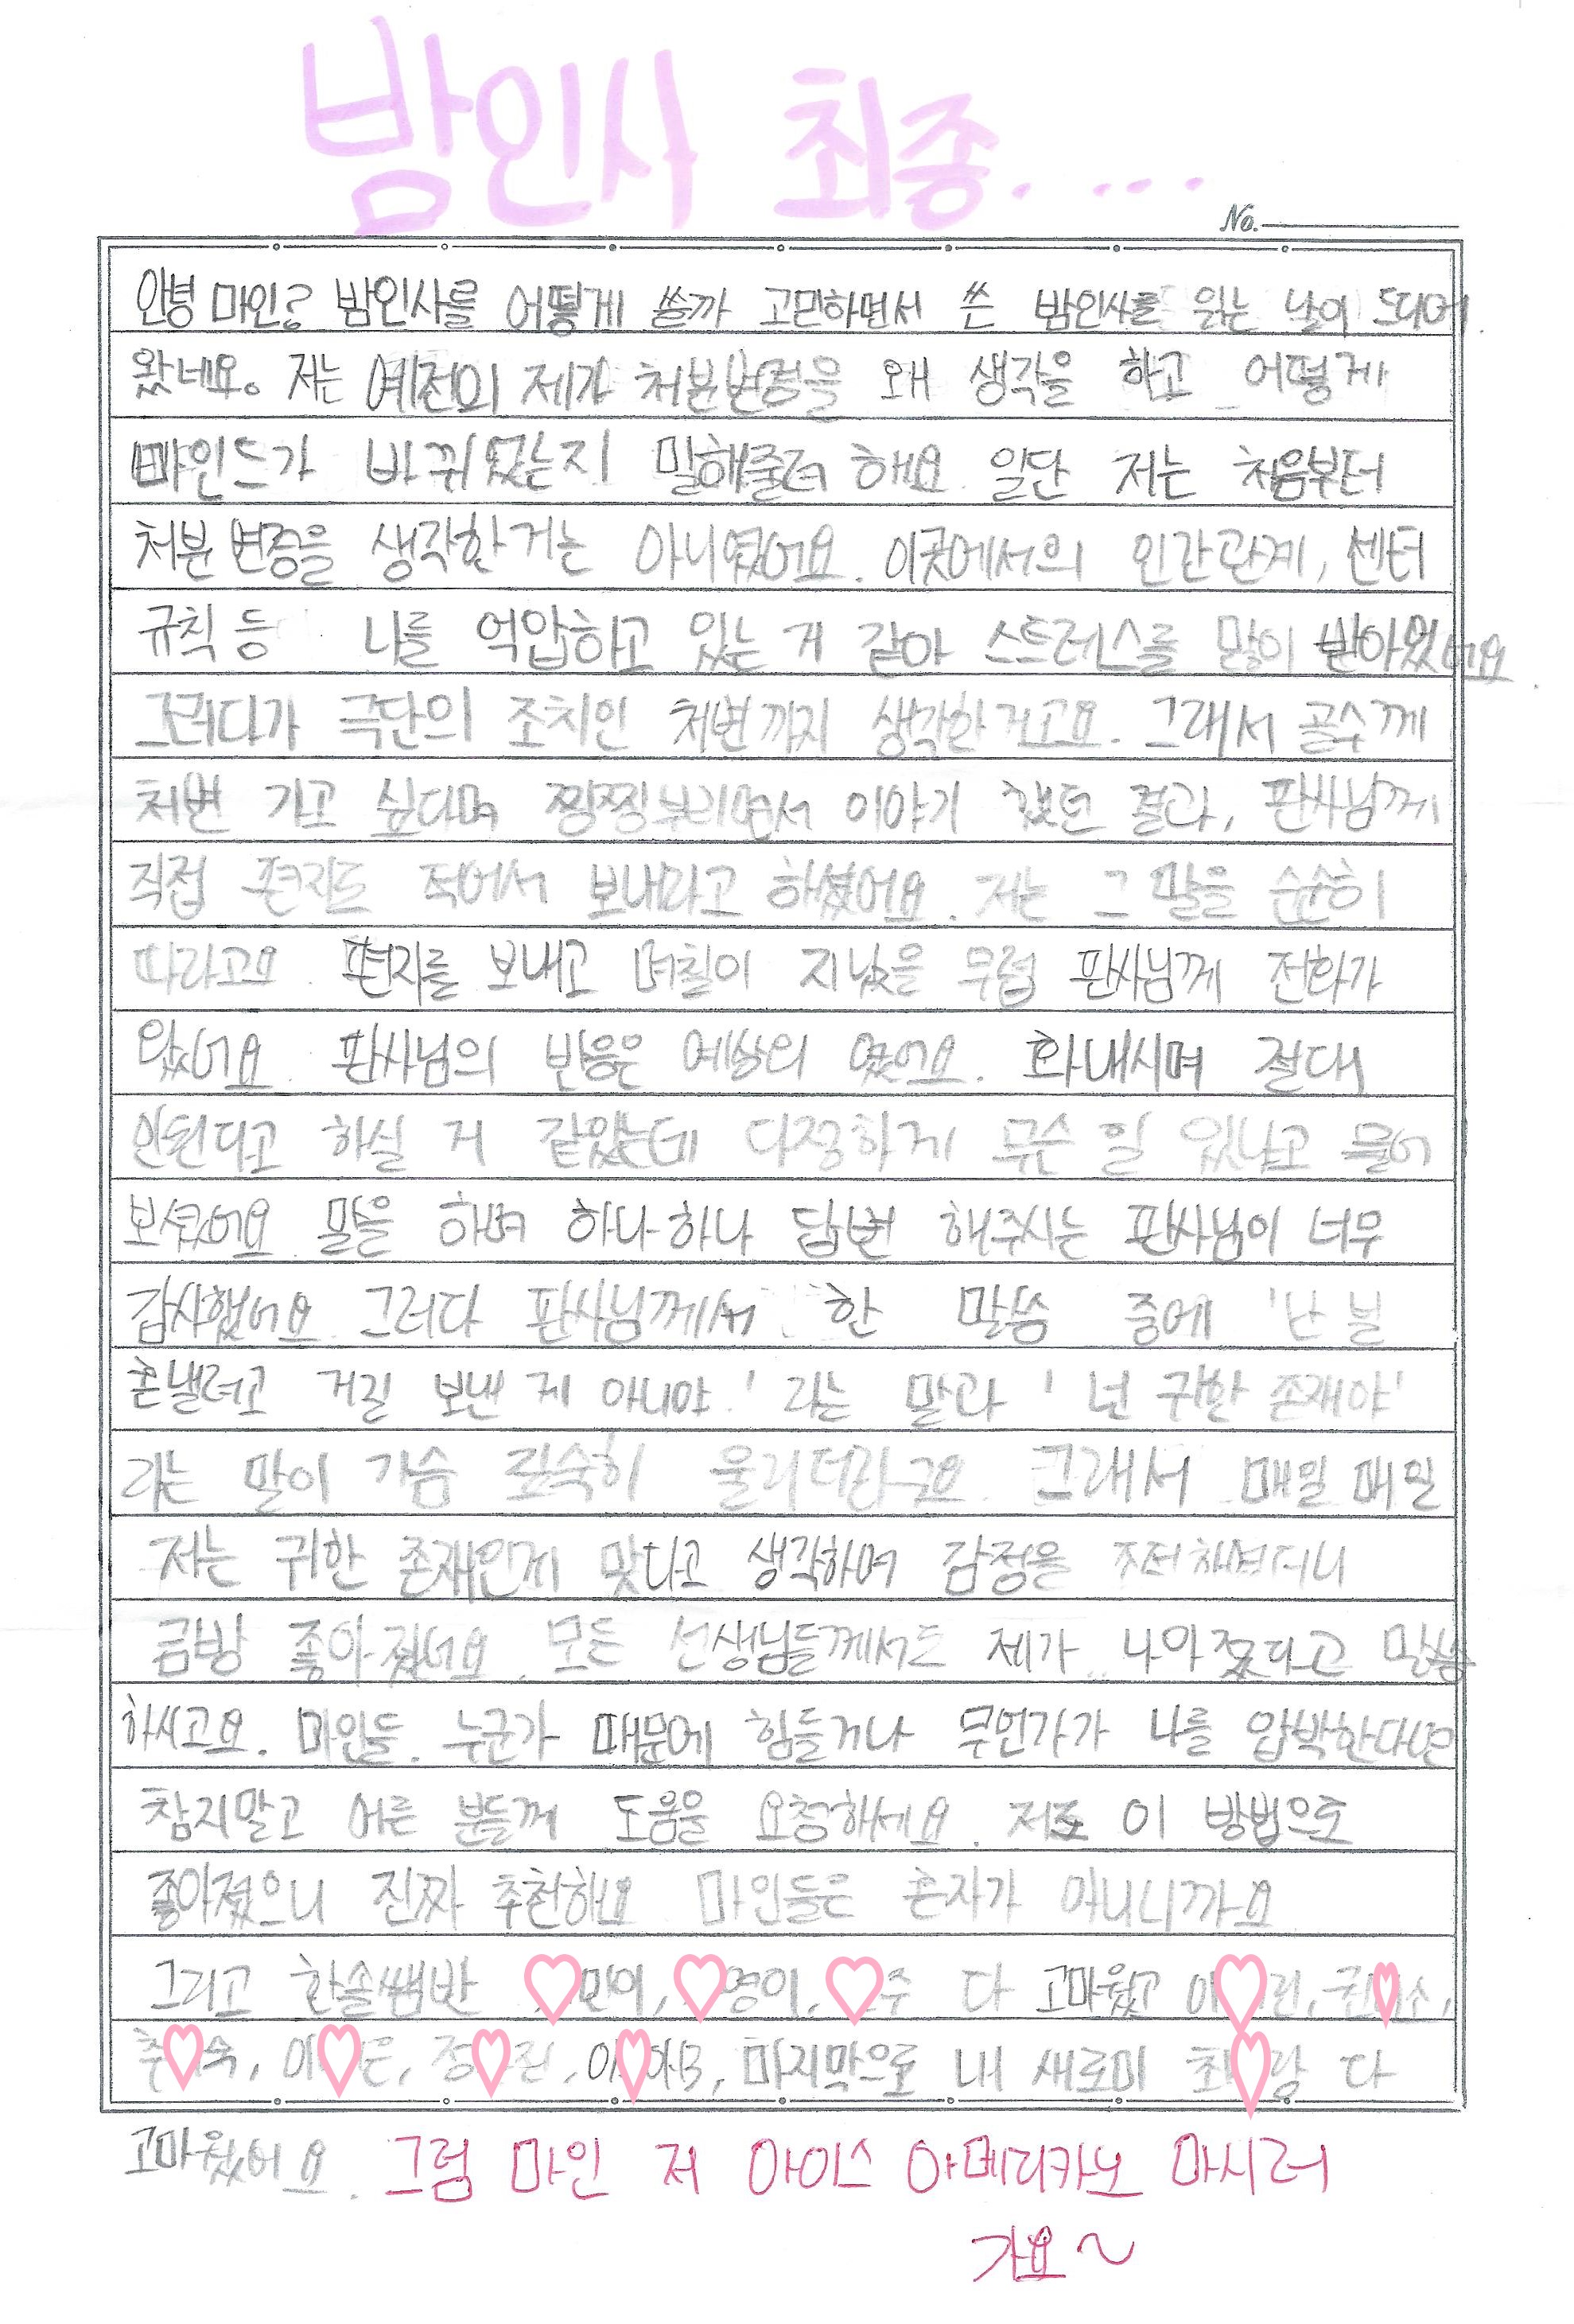 밤인사 최종. ...
No.
안녕 마인? 밤인사를 어떻게 쓸까 고민하면서 쓴 밤인사를 읽는 날이 드디어
왔네요. 저는 예전의 제가 처분변경을 왜 생각을 하고 어떻게
마인드가 바뀌었는지 말해줄려 해요. 일단 저는 처음부터
처분변경을 생각한 거는 아니였어요. 이곳에서의 인간관계, 센터
규칙 등 나를 억압하고 있는 거 같아 스트레스를 많이 받아왔어요.
그러다가 극단의 조치인 처변까지 생각한거고요. 그래서 골수께
처변 가고 싶다며 찡찡부리면서 이야기 했던 결과, 판사님께
직접 편지를 적어서 보내라고 하셨어요. 저는 그 말을 순순히
따라고요. 편지를 보내고 며칠이 지났을 무렵 판사님께 전화가
왔어요. 판사님의 반응은 예상외 였어요. 화내시며 절대
안된다고 하실 거 같았는데 다정하게 무슨 일 있냐고 물어
보셨어요. 말을 하며 하나하나 답변 해주시는 판사님이 너무
감사했어요. 그러다 판사님께서 한 말씀 중에 '난 널
혼낼려고 거길 보낸 게 아니야.' 라는 말과 '넌 귀한 존재야'
라는 말이 가슴 깊숙히 울리더라구요. 그래서 매일 매일
저는 귀한 존재인게 맞다고 생각하며 감정을 조절하였더니
금방 좋아졌어요. 모든 선생님들께서도 제가 나아졌다고 말씀
하시고요. 마인들. 누군가 때문에 힘들거나 무언가가 나를 압박한다면
참지말고 어른 분들께 도움을 요청하세요. 저도 이 방법으로
좋아졌으니 진짜 추천해요. 마인들은 혼자가 아니니까요
그리고 한솔쌤반 민이, 영이, 주 다 고마웠고 이 린, 권 소,
추 숙, 이 은, 정 진, 이 마지막으로 내 새로미 최 랑 다
고마웠어요. 그럼 마인 저 아이스 아메리카노 마시러
가요~